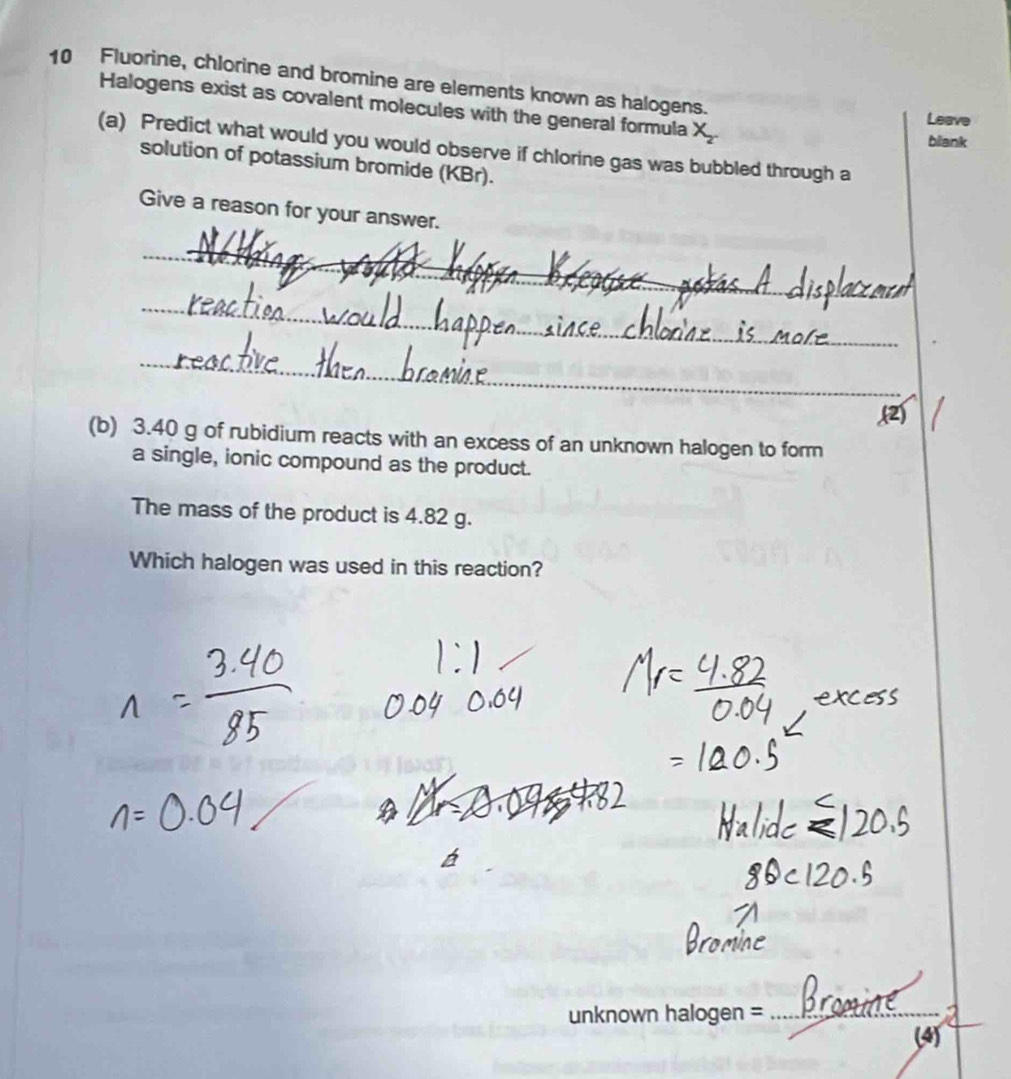 10 Fluorine, chlorine and bromine are elements known as halogens.
Halogens exist as covalent molecules with the general formula X₂.
Leave
blank
(a) Predict what would you would observe if chlorine gas was bubbled through a
solution of potassium bromide (KBr).
Give a reason for your answer.
Nothing would happen because A displacement
reaction would happen since chlorine is more
reactive then bromine
(2) 1
(b) 3.40 g of rubidium reacts with an excess of an unknown halogen to form
a single, ionic compound as the product.
The mass of the product is 4.82 g.
Which halogen was used in this reaction?
n = 3.40 / 85
n = 0.04
1:1
0.04 0.04
Mr = 4.82 / 0.04
excess
= 120.5
Halide < 120.5
80 < 120.5
Bromine
unknown halogen = Bromine
(4) 2